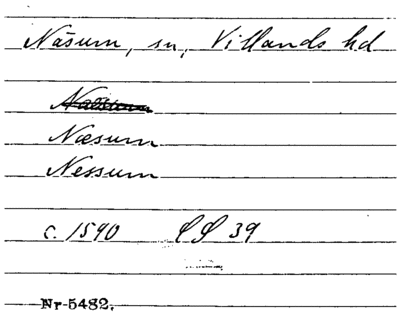 Näsum, sn, Villands hd
Næsum
Nessum
c. 1590 39
Nr 5482.